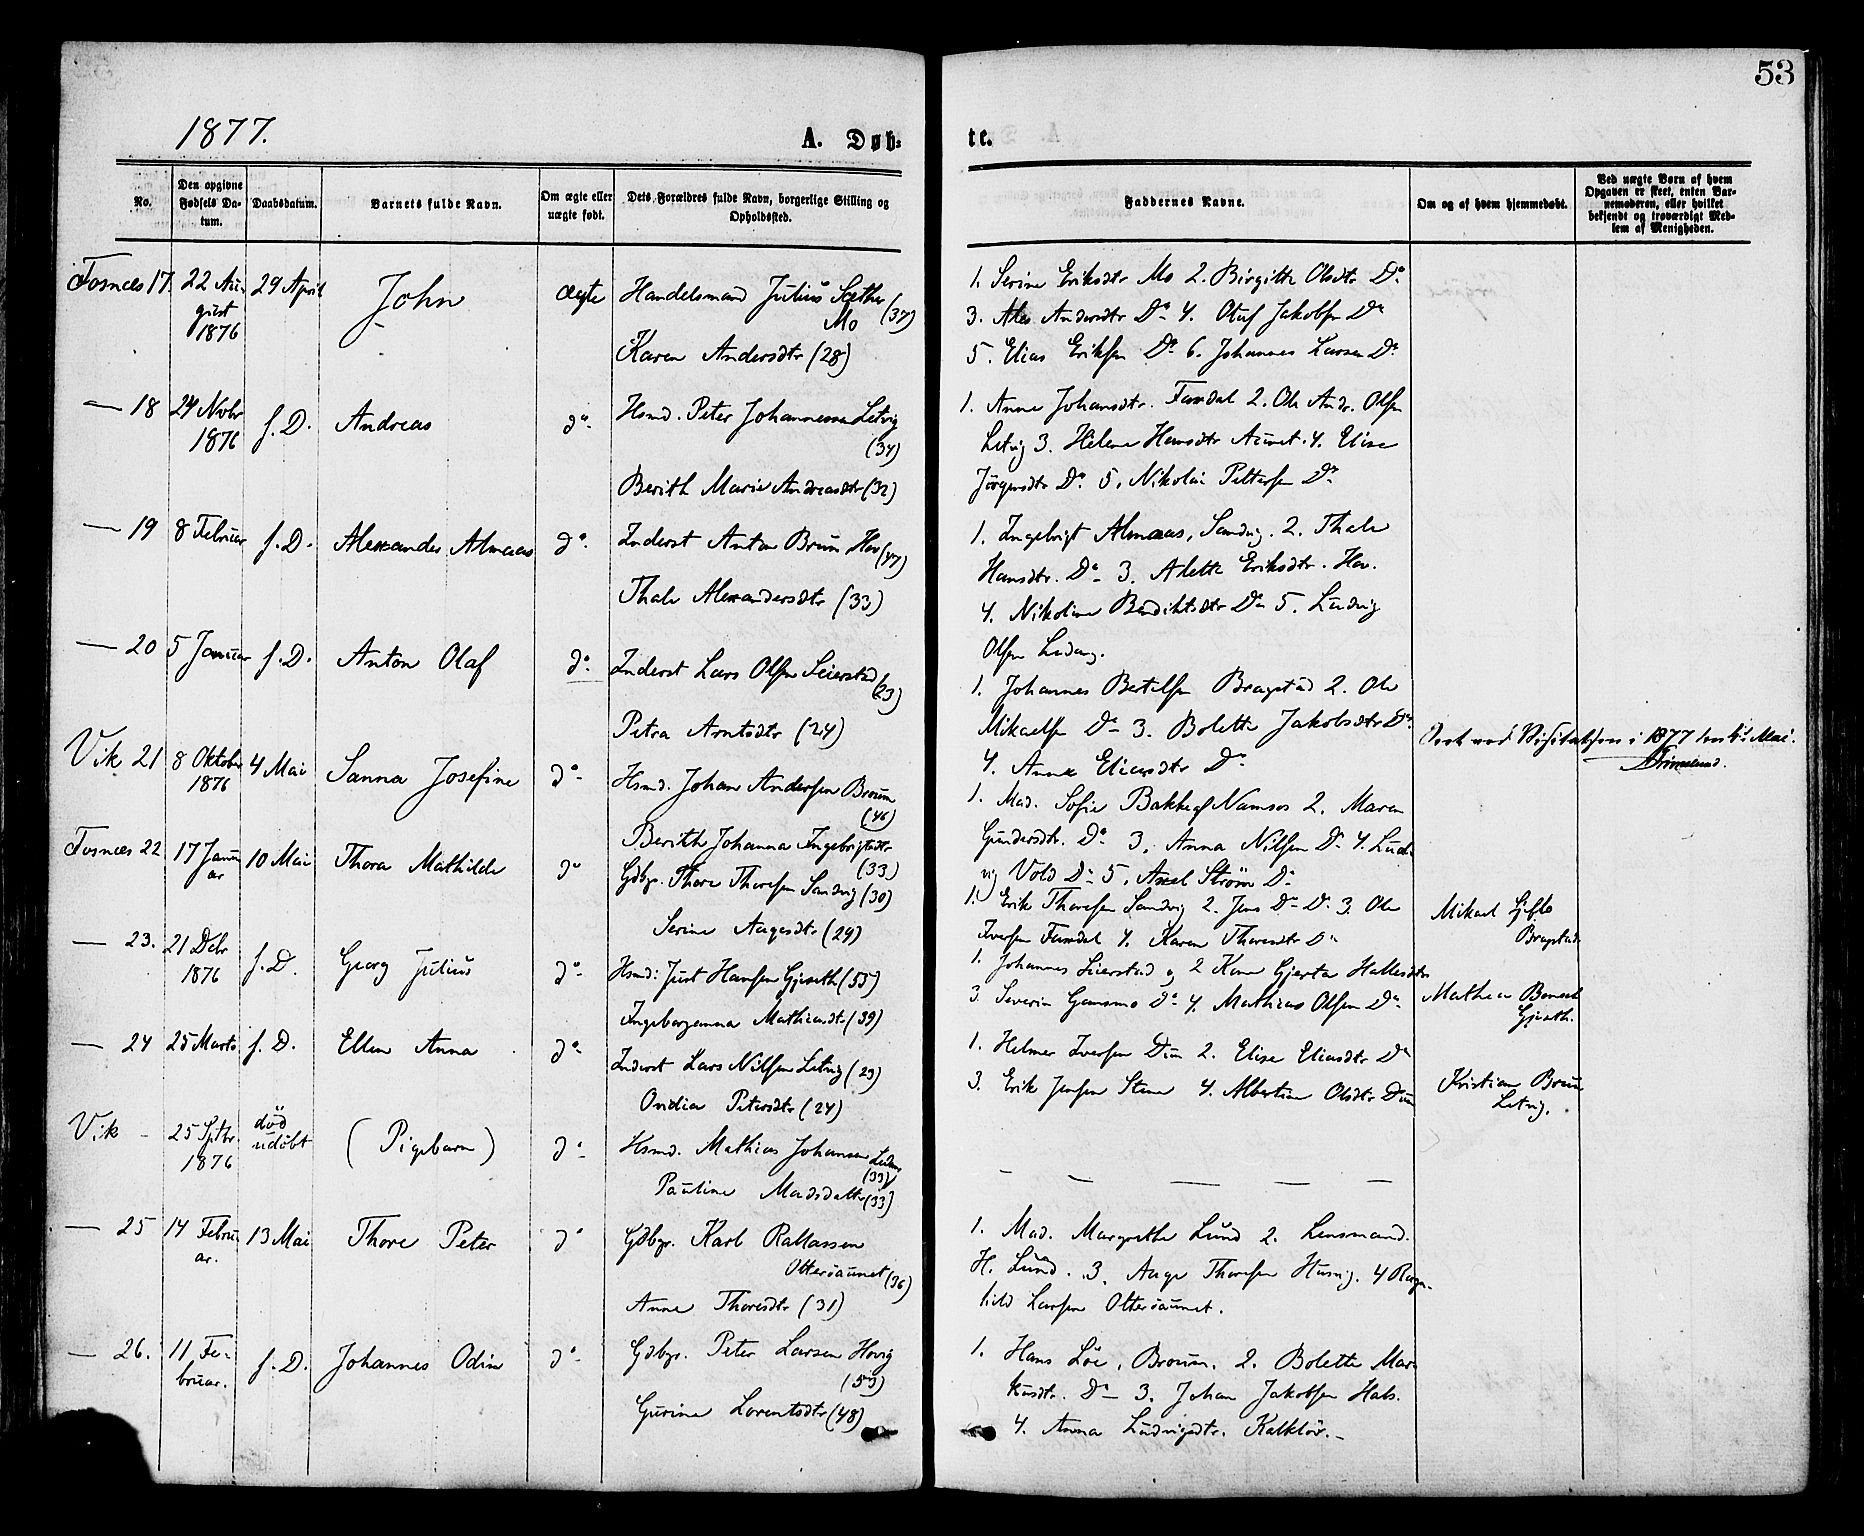 53
1877.
A. Døb=
te.
No.
Den opgivne Fødsels Da-
tum.
Daabsdatum.
Barnets fulde Navn.
Om ægte eller
uægte født.
Dets Forældres fulde Navn, borgerlige Stilling og
Opholdssted.
Faddernes Navne.
Om og af hvem hjemmedøbt.
Ved uægte Børn af hvem
Opgaven er skeet, enten Bar-
nemoderen, eller hvilket
bekjendt og troværdigt Med-
lem af Menigheden.
Fosnæs 17 22 Au 29 April John Ægte Handelsmand Julius Sæther (37)
gust
1876
Mo
Karen Andersdtr (28)
1. Serine Eriksdtr Mo 2. Birgitte Olsdtr Do
3. Andersdtr Do 4. Oluf Jakobsen Do
5. Elias Eriksen Do 6. Johannes Larsen Do
— 18 24 Novbr f. D. Andreas do Hsmd. Peter Johannessen Letvig
1876
(34)
Berith Marie Andreasdtr (32)
1. Anne Johansdtr. Faxdal 2. Ole Andr. Olsen
Letvig 3. Helene Hansdtr Aunet. 4. Elise
Jørgensdtr Do 5. Nikolai Pettersen Do
— 19 8 Februar f. D. Alexander Almaas do Inderst Anton Brun Hov (47)
Thale Alexandersdtr (33)
1. Ingebrigt Almaas, Sandvig. 2. Thale
Hansdtr. Do 3. Alette Eriksdtr. Hov.
4. Nikoline Bendiktsdtr Do 5. Ludvig
Olsen
— 20 5 Januar f. D. Anton Olaf do Inderst Lars Olsen Seierstad (23)
Petra Arntsdtr (24)
1. Johannes Bertilsen Bragstad 2. Ole
Mikaelsen Do 3. Bolette Jakobsdtr Do
4. Anne Eliasdtr Do
Seet ved Visitatsen i 1877 Mai.
Grimelund.
Vik 21 8 Oktober 4 Mai Sanna Josefine do Hsmd. Johan Andersen Broum
1876
(46)
Berith Johanna Ingebrigtsdtr
(33)
1. Mad. Sofie Bakke af Namsos 2. Maren
Gundersdtr. Do 3. Anna Nilsen Do 4. Lud-
vig Vold Do 5. Axel Strøm Do
Fosnæs 22 17 Janu 10 Mai Thora Mathilde do Gdbgr. Thore Thoresen Sandvig (30)
ar
Serine Aagesdtr (29)
1. Erik Thoresen Sandvig 2. Jens Do Do 3. Ole
Iversen Faxdal 4. Karen Thoresdtr Do
Mikael
Bragstad
— 23. 21 Debr f. D. Georg Julius do Hsmd: Just Hansen Gjæseth (55)
1876
Ingeborganna Mathiasdtr (39)
1. Johannes Seierstad og 2 Kone Gjerta Hallesdtr
3. Severin Gansmo Do 4. Mathias Olsen Do
Gjæseth.
— 24 25 Marts f. D. Ellen Anna do Inderst Lars Nilsen Letvig (23)
Ondia Petersdtr (24)
1. Helmer Iversen Dun 2. Elise Eliasdtr Do
3. Erik Jensen Stene 4. Albertine Olsdtr Dun
Kristian Brun
Letvig.
Vik - 25 Sptbr. død (Pigebarn) do Hsmd. Mathias Johansen
1876 udøbt
(33)
Pauline Madsdatter (33)
— — — — —
— 25 14 Febru 13 Mai Thore Peter do Gdbgr. Karl Rallassen
ar.
Ottersaunet (36)
Anne Thoresdtr (31)
1. Mad. Margrethe Lund 2. Lensmand.
H. Lund. 3. Aage Thoresen Husvig. 4 Ragn-
hild Larsen Ottersaunet.
— 26. 11 Fe- f. D. Johannes Odin do Gdbgr. Peter Larsen Hovig
bruar.
(53)
Gurine Lorentsdtr (48)
1. Hans Löe, Broum. 2. Bolette Mar
kusdtr. Do 3. Johan Jakobsen Hals.
4. Anna Ludvigsdtr. Kalkløv.